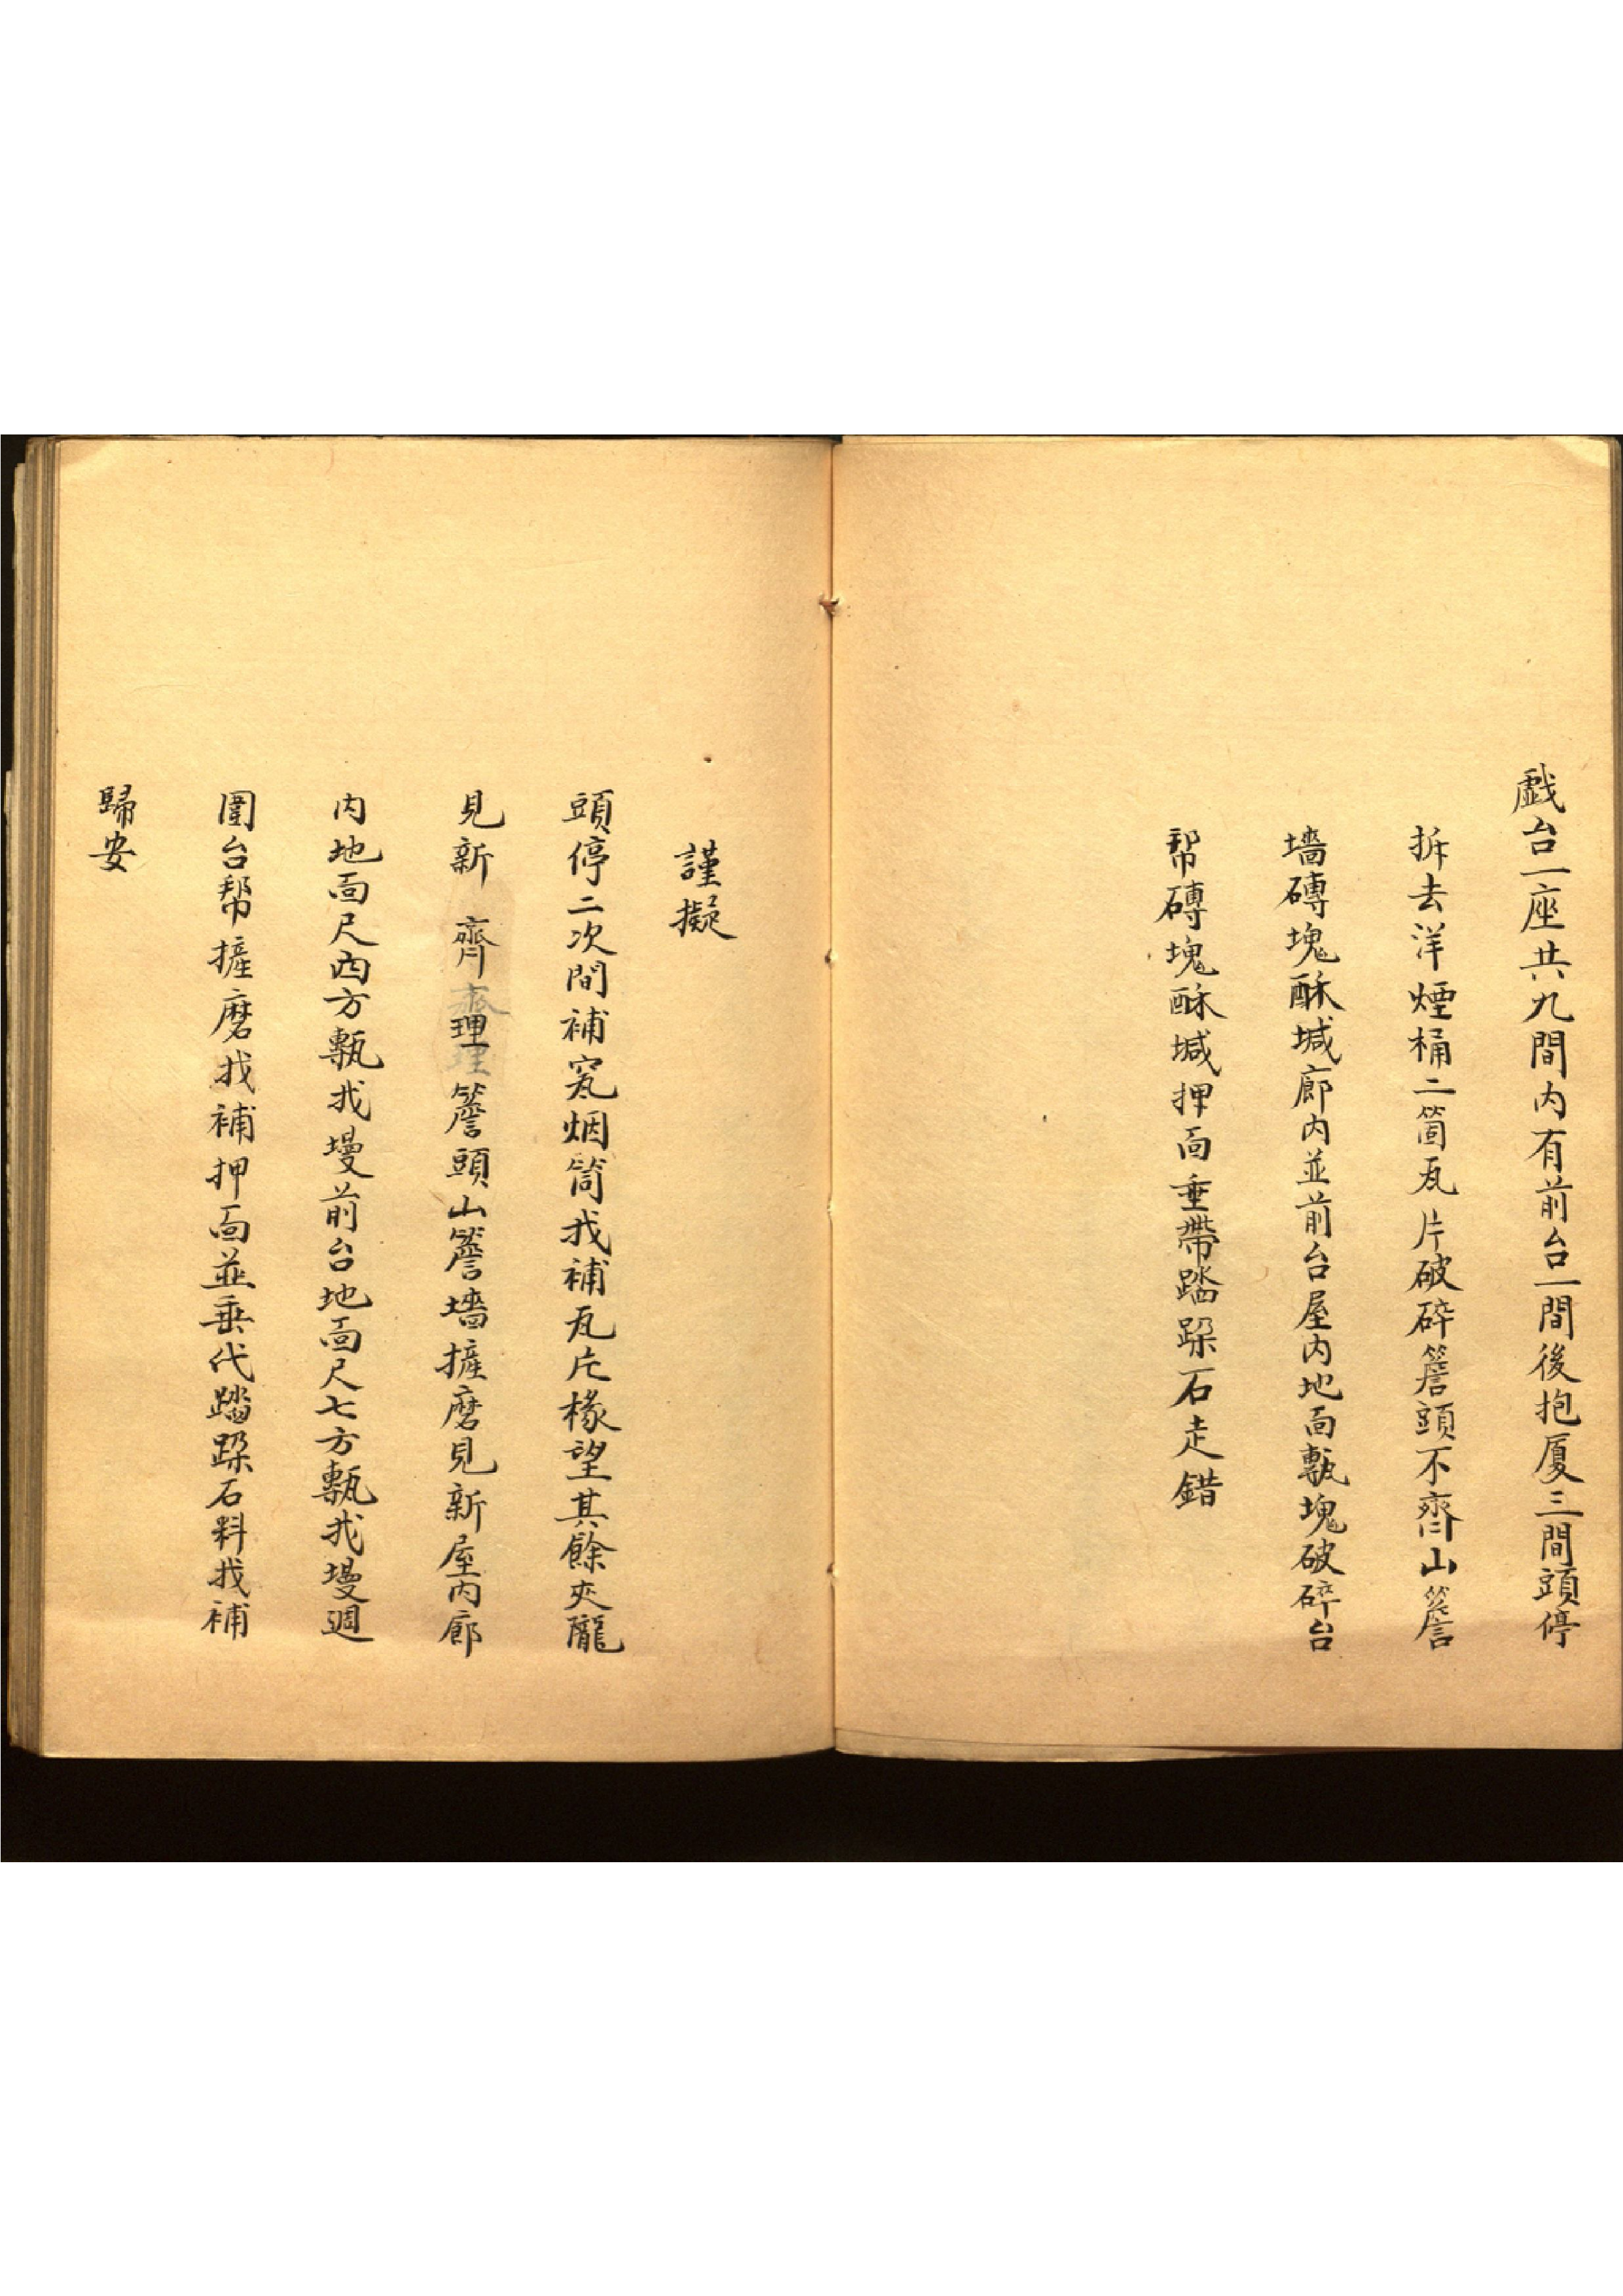 戲台一座共九間内有前台一間後抱厦三間頭停
拆去洋煙桶二箇瓦片破碎簷頭不齊山簷
墻磚塊酥堿廊内並前台屋内地面甎塊破碎台
帮磚塊酥堿押面垂帶踏跺石走錯
謹擬
頭停二次間補窊烟筒找補瓦片椽望其餘夾隴
見新齊理簷頭山簷墻摭磨見新屋内廊
内地面尺四方甎找墁前台地面尺七方甎找墁週
圍台幇摭磨找補押面並垂代踏跺石料找補
歸安